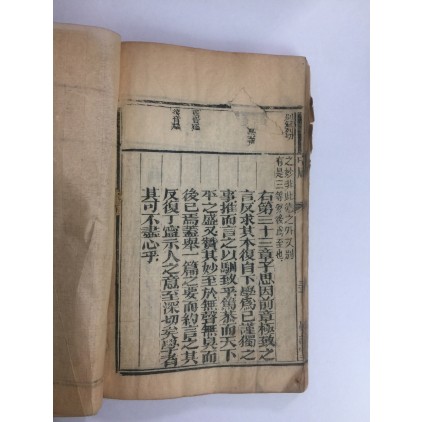 之妙非此德之外又別
有是三等然後為至也
右第三十三章子思因前章極致之
言反求其本復自下學為己謹獨之
事推而言之以馴致乎篤恭而天下
平之盛又贊其妙至於無聲無臭而
後已焉蓋舉一篇之要而約言之其
反復丁寧示人之意至深切矣學者
其可不盡心乎